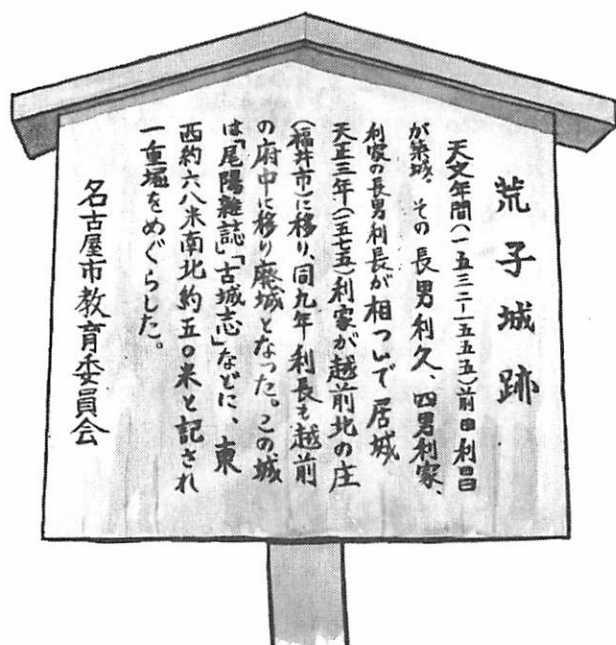 荒子城跡
天文年間(一五三二ー一五五五)前田利昌
が築城。その長男利久、四男利家、
利家の長男利長が相ついで居城
天正三年(一五七五)利家が越前北の庄
(福井市)に移り、同九年利長も越前
の府中に移り廃城となった。この城
は「尾陽雑誌」「古城志」などに、東
西約六八米南北約五〇米と記され
一重堀をめぐらした。
名古屋市教育委員会